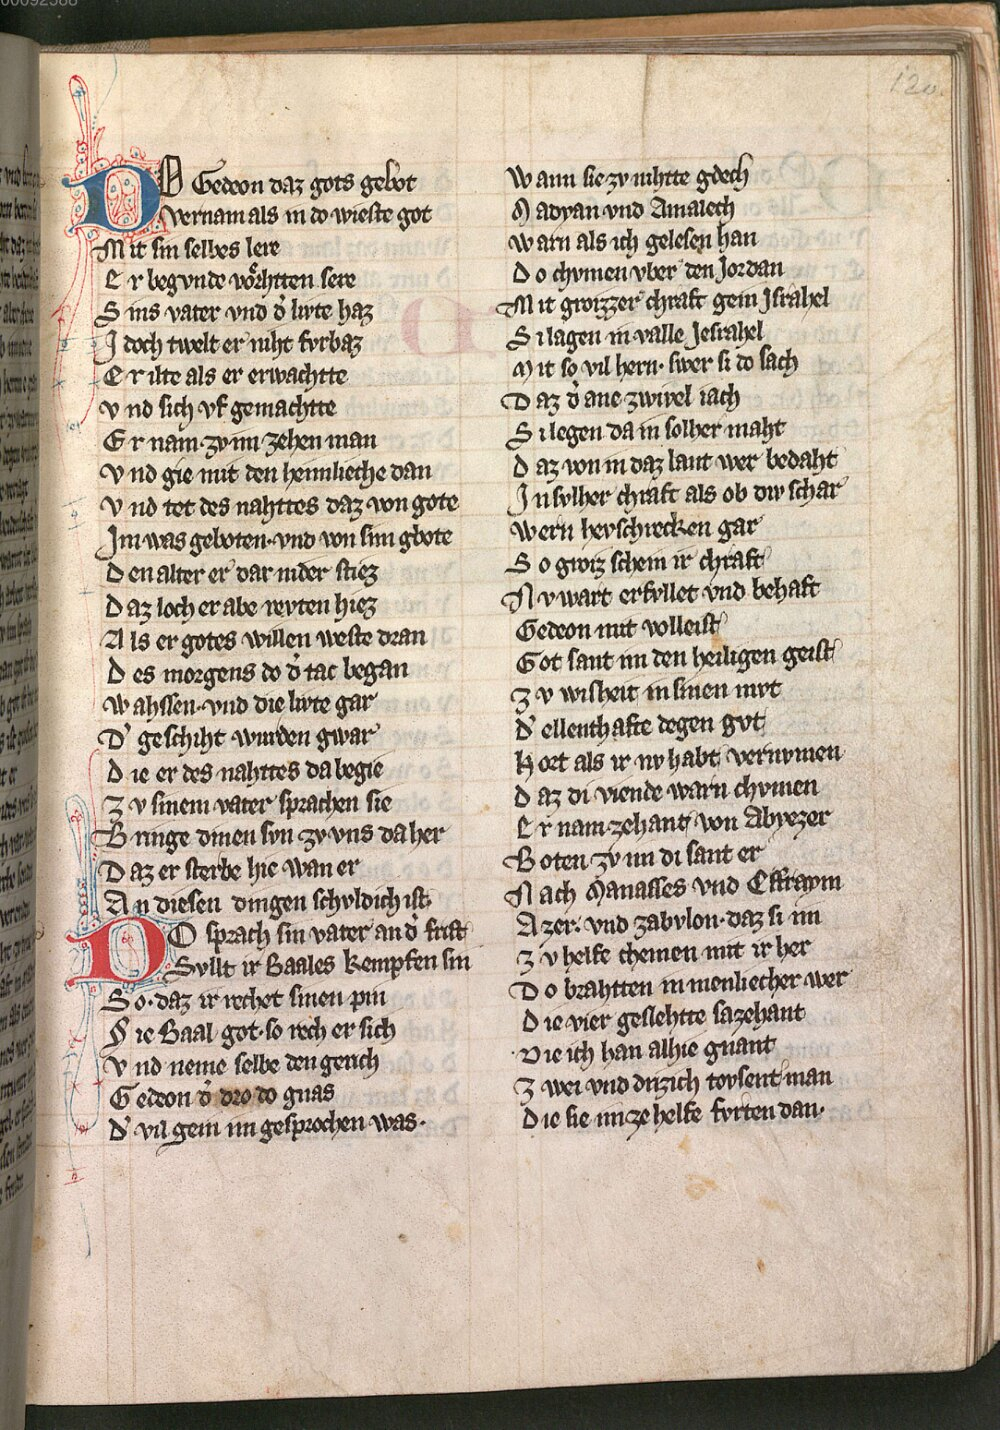 00092588
120
DO Gedeon daz gots gebot
Vernam als in do wieste got
Mit sin selbes lere
Er begvnde vo̊rhtten sere
Sins vater vnd d' livte haz
Jdoch twelt er niht fvrbaz
Er ilte als er erwachtte
vnd sich vf gemachtte
Er nam zv im zehen man
Vnd gie mit den heimlieche dan
Vnd tet des nahttes daz von gote
Im was geboten. vnd von sim gbote
Den alter er dar nider stiez
Daz loch er abe revten hiez
Als er gotes willen weste dran
Des morgens do d' tac began
wahssen. vnd die livte gar
D' geschiht wurden gwar
Die er des nahttes da begie
Zv sinem vater sprachen sie
Bringe dinen svn zv vns da her
Daz er sterbe hie wan er
An diesen dingen schvldich ist
DO sprach sin vater an d' frist
Svllt ir Baales kempfen sin
So. daz ir rechet sinen pin
Sie Baal got. so rech er sich
Vnd neme selbe den gerich
Gedeon d' dro do gnas
D' vil gein im gesprochen was.
Wann sie zv nihtte gdech
Madyan vnd Amalech
warn als ich gelesen han
Do chvmen vber den Jordan
Mit groizzer chraft gein Jsrahel
Si lagen in valle Jesrahel
Mit so vil hern. swer si do sach
Daz d' ane zwivel iach
Si legen da in solher maht
Daz von in daz lant wer bedaht
Jn svlher chraft als ob div schar
wern hevschrecken gar
So groiz schein ir chraft
Nv wart erfvllet vnd behaft
Gedeon mit volleist
Got sant im den heiligen geist
Zv wisheit in sinen mvt
D' ellenthafte degen gvt
Hort als ir nv habt vernvmen
Daz di viende warn chvmen
Er nam zehant von Abyezer
Boten zv im di sant er
Nach Manasses vnd Effraym
Azer. vnd Zabvlon. daz si im
Zv helfe chemen mit ir her
Do brahtten in menliecher wer
Die vier geslehtte sazehant
Die ich han alhie gnant
Zwei vnd drizich tovsent man
Die sie im ze helfe fvrten dan.